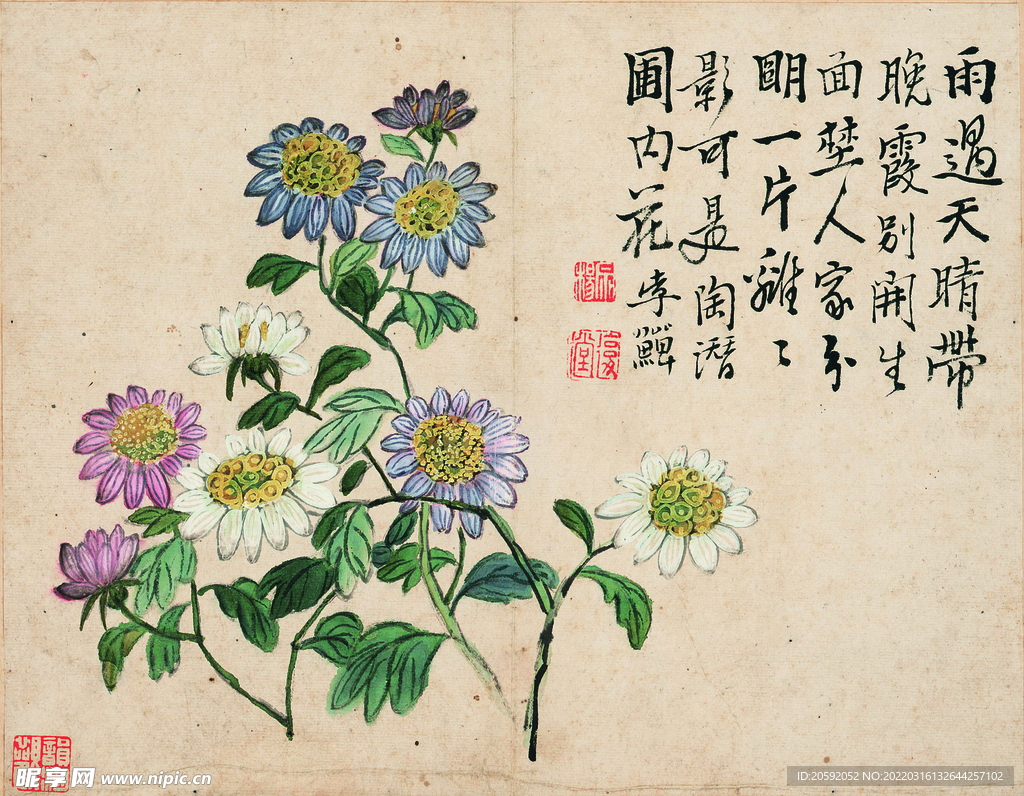 雨過天晴帶
晚霞別開生
面埜人家分
朙一片離〻
影可是陶潛
圃内花李鱓
昵享网 www.nipic.cn
ID:20592052 NO:20220316132644257102